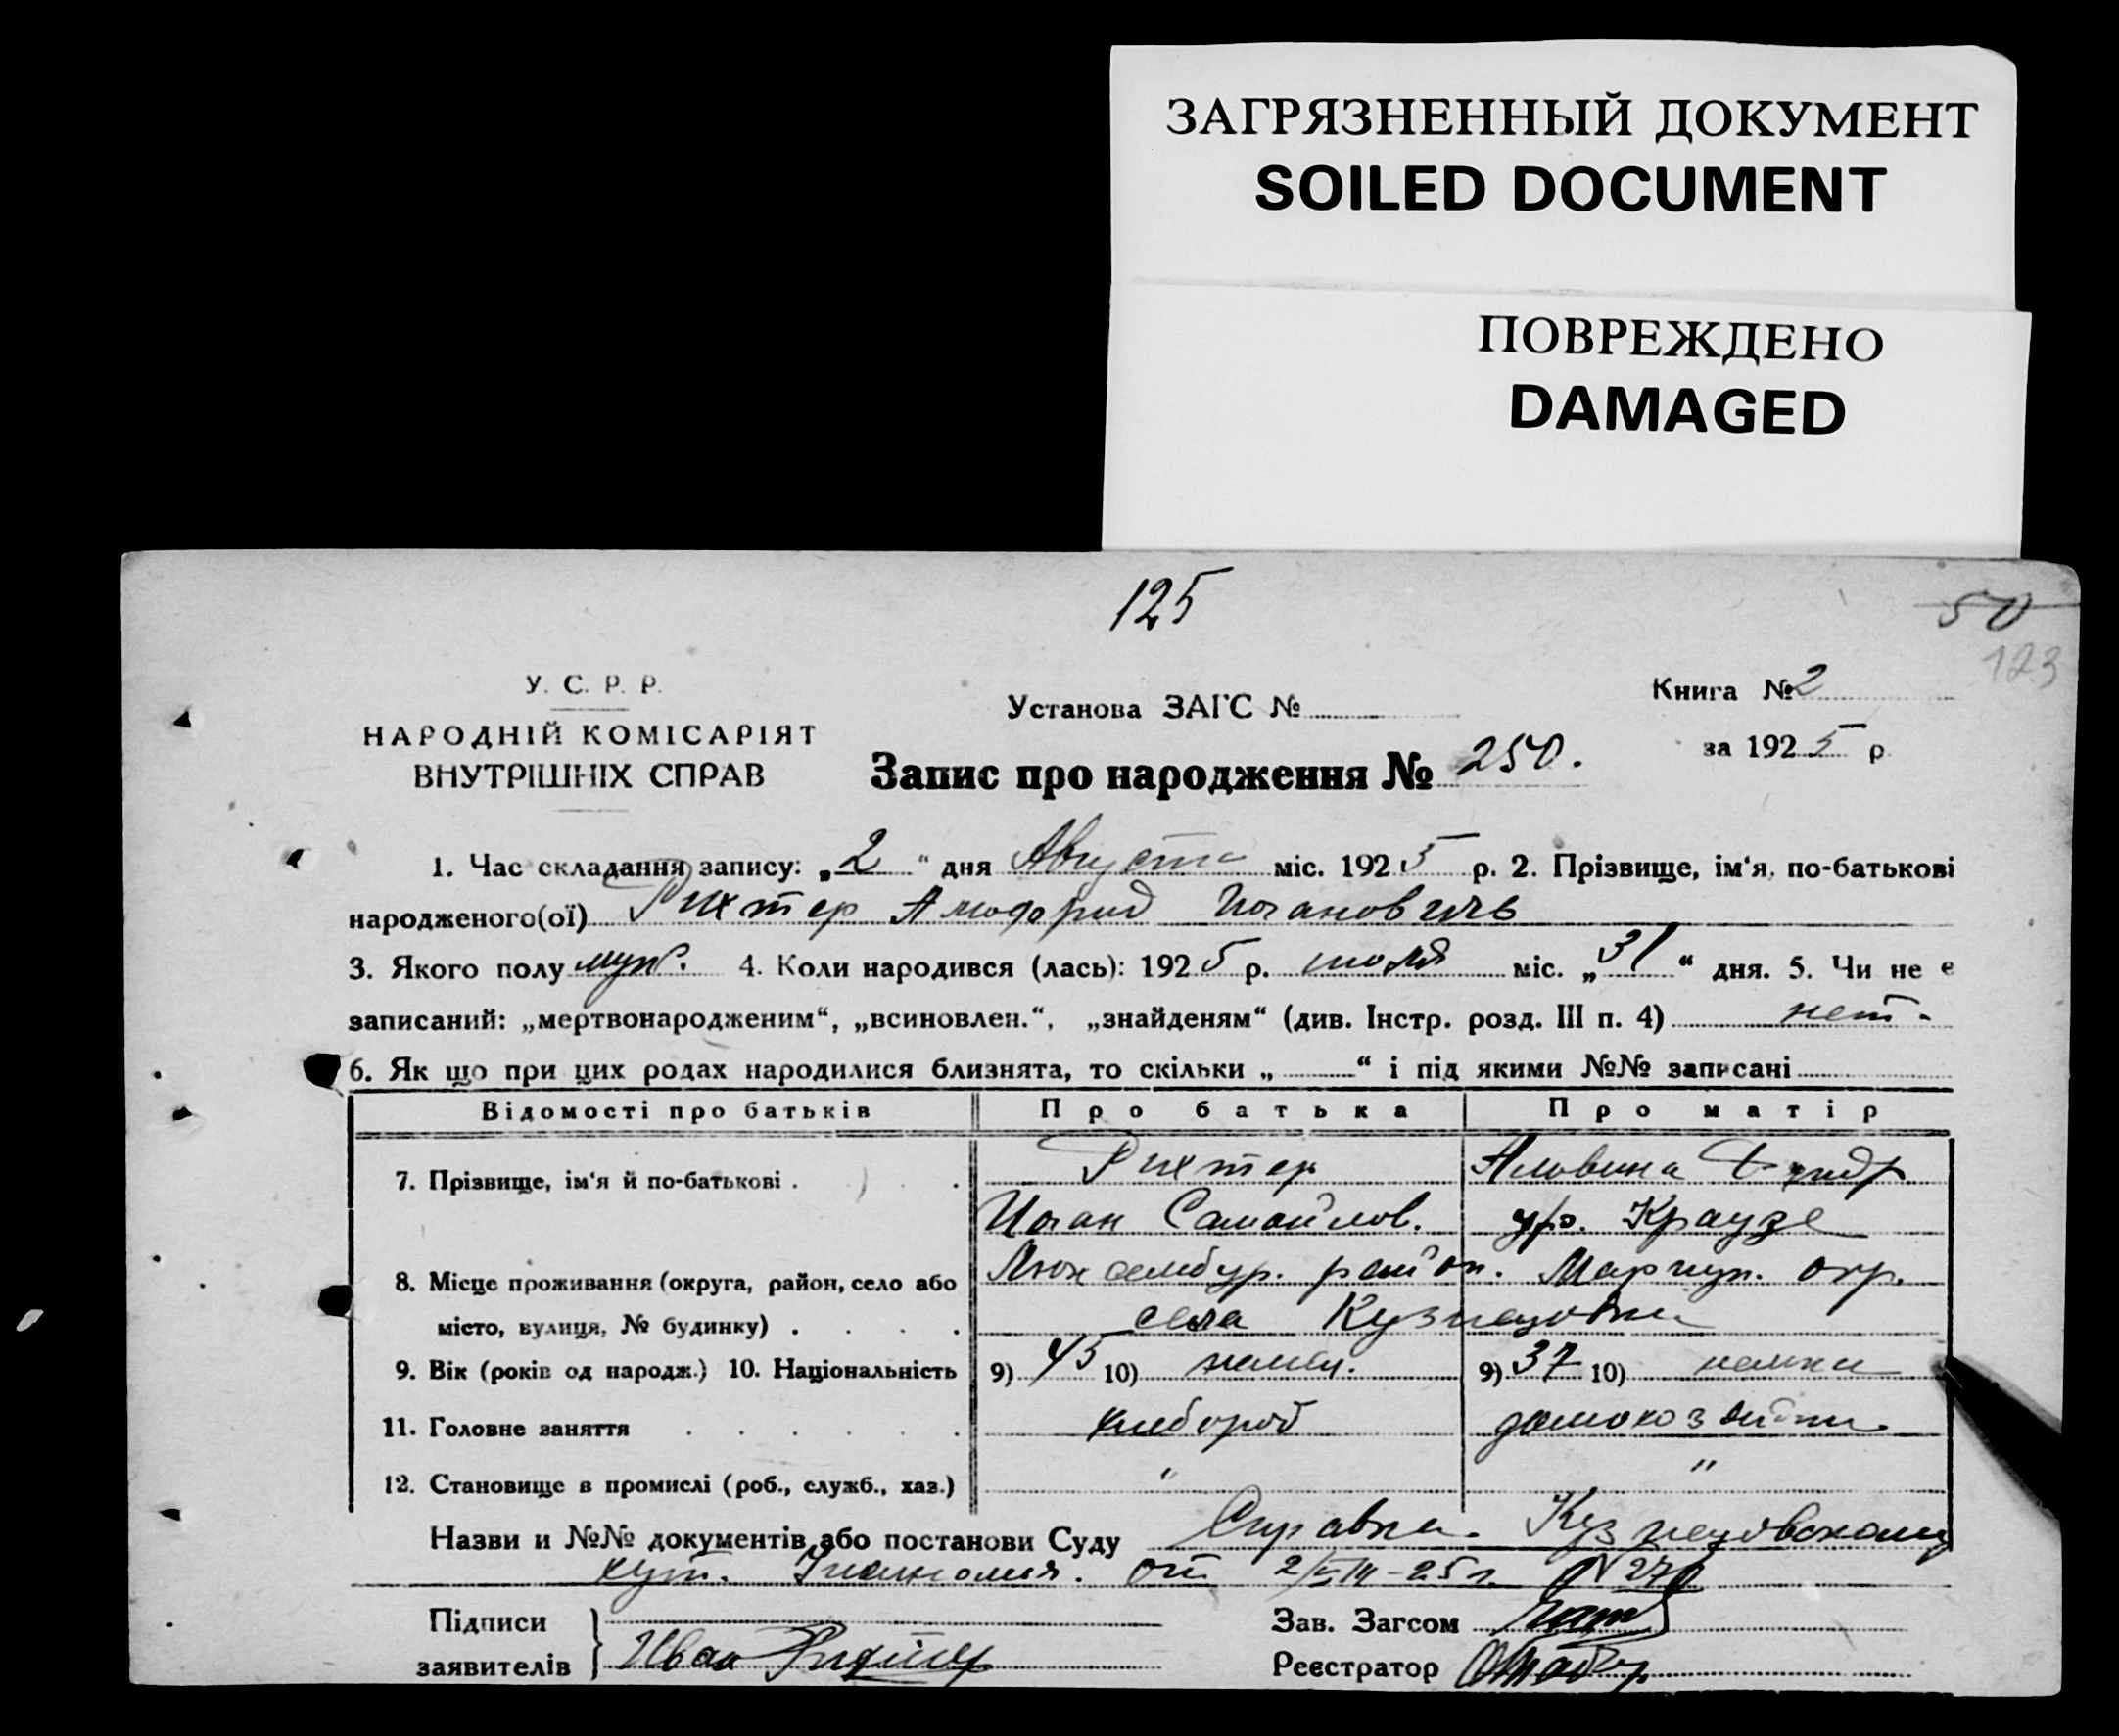 ЗАГРЯЗНЕННЫЙ ДОКУМЕНТ
SOILED DOCUMENT
ПОВРЕЖДЕНО
DAMAGED
125
50
123
У. С. Р. Р.
НАРОДНІЙ КОМІСАРІЯТ
ВНУТРІШНІХ СПРАВ
Установа ЗАГС №
Книга № 2
за 1925 р.
Запис про народження № 250.
1. Час складання запису: „2“ дня Августа міс. 1925 р. 2. Прізвище, ім‘я, по-батькові
народженого(ої) Рихтер Иогановичь
3. Якого полу муж. 4. Коли народився (лась): 1925 р. июля міс. „31“ дня. 5. Чи не є
записаний: „мертвонародженим“, „всиновлен.“, „знайденям“ (див. Інстр. розд. III п. 4) нет.
6. Як що при цих родах народилися близнята, то скільки „ “ і під якими №№ записані
Відомості про батьків Про батька Про матір
7. Прізвище, ім‘я й по-батькові . Рихтер Альвина Фридр.
Иоган Самойлов. ур. Краузе
8. Місце проживання (округа, район, село або Люксембур. район. Мариуп. окр.
місто, вулиця, № будинку) . . . . села Кузнецовки
9. Вік (років од народж.) 10. Національність 9) 45 10) немец. 9) 37 10) немка
11. Головне заняття . . . . . . хлебороб домохозяйка
12. Становище в промислі (роб., служб., хаз.) " "
Назви и №№ документів або постанови Суду Справка. Кузнецовского
от 2/VIII-25 г. №270
Підписи Зав. Загсом
заявителів Иван Рихтер Реєстратор